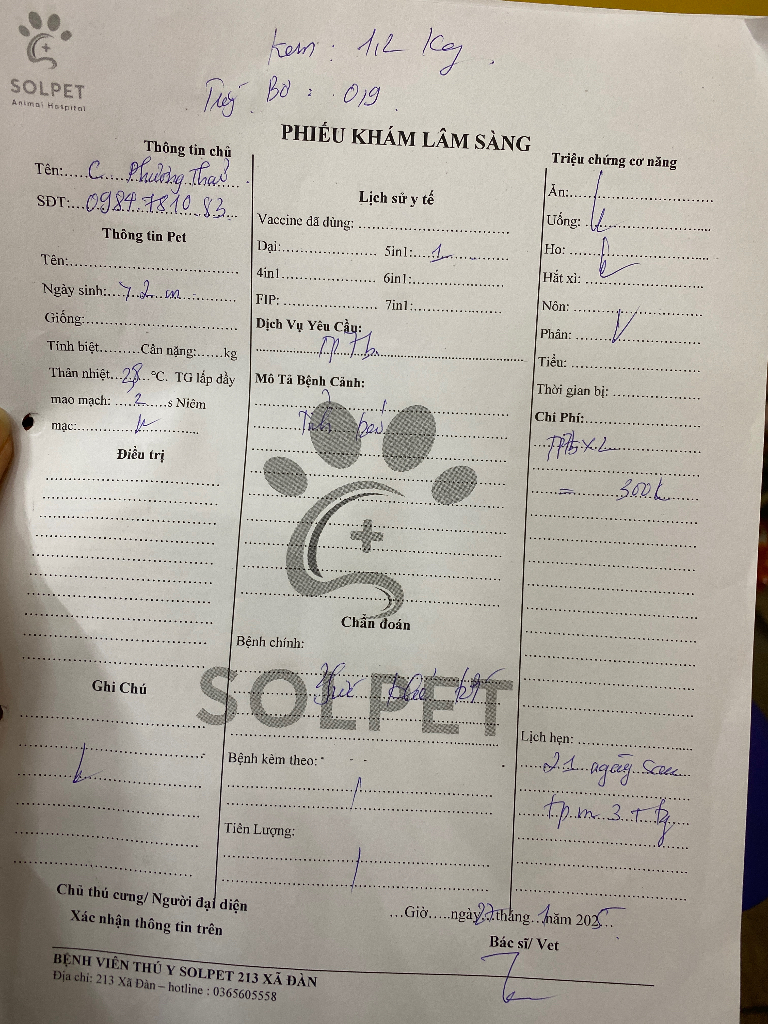 SOLPET
Animal Hospital
Kem : 1,2 Kg
Bơ : 0,9
PHIẾU KHÁM LÂM SÀNG
Thông tin chủ
Tên: C. Phương Thảo
SĐT: 0984.7810 83
Thông tin Pet
Tên:
Ngày sinh: 7.2 m
Giống:
Tính biệt.........Cân nặng:......kg
Thân nhiệt 38 °C. TG lấp đầy
mao mạch: 2 s Niêm
mạc:
Điều trị
Ghi Chú
Lịch sử y tế
Vaccine đã dùng:
Dại: 5in1: 1
4in1 6in1:
FIP: 7in1:
Dịch Vụ Yêu Cầu:
Mô Tả Bệnh Cảnh:
SOLPET
Chẩn đoán
Bệnh chính:
Bệnh kèm theo:
Tiên Lượng:
Triệu chứng cơ năng
Ăn:
Uống:
Ho:
Hắt xì:
Nôn:
Phân:
Tiểu:
Thời gian bị:
Chi Phí:
= 300k
Lịch hẹn:
21 ngày sau
tp.m 3 +
Chủ thú cưng/ Người đại diện
Xác nhận thông tin trên
...Giờ.....ngày 27 tháng 1 năm 2025
Bác sĩ/ Vet
BỆNH VIÊN THÚ Y SOLPET 213 XÃ ĐÀN
Địa chỉ: 213 Xã Đàn – hotline : 0365605558